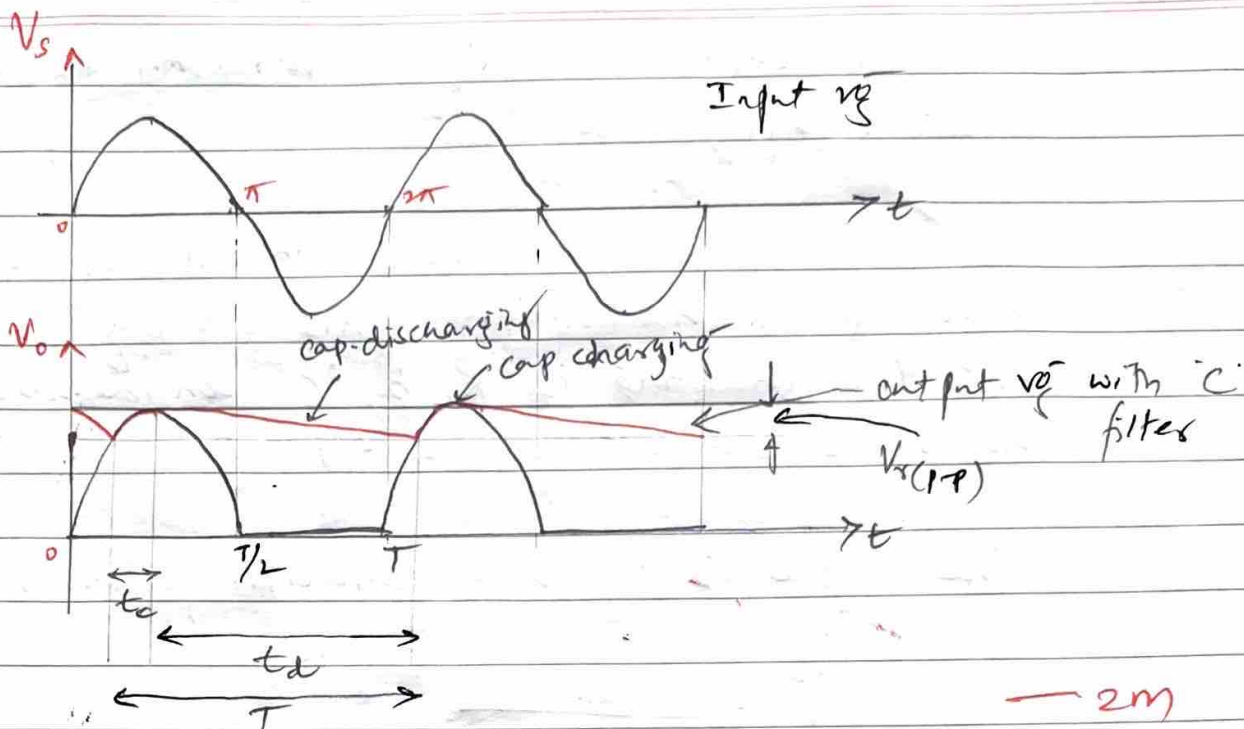 Vs
Input vg
π
2π
0
t
Vo
cap. discharging
cap charging
output vg with 'C'
filter
Vr(p-p)
0
T/2
T
t
tc
td
T
— 2M